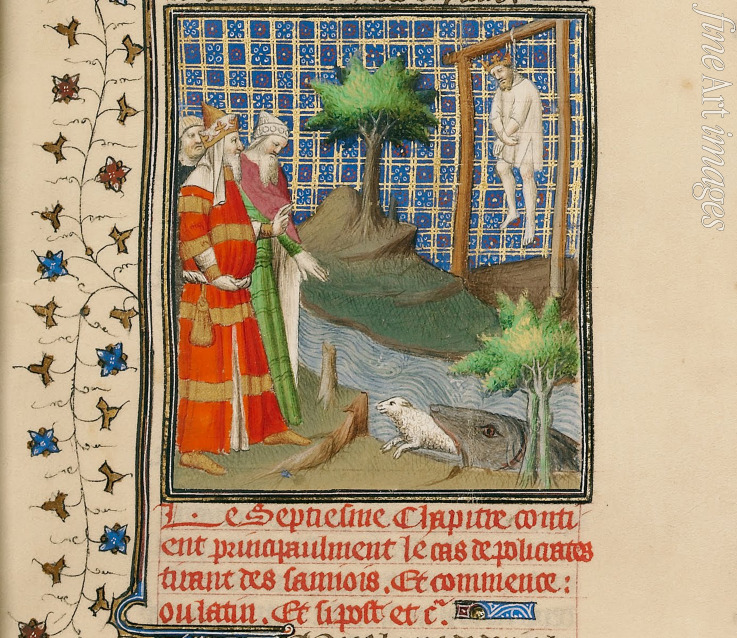 Le Septiesme Chapitre conti
ent principaulment le cas de policrates
tirant des sannois. Et commence:
ou latin. Et si post et c̃.
fine Art images